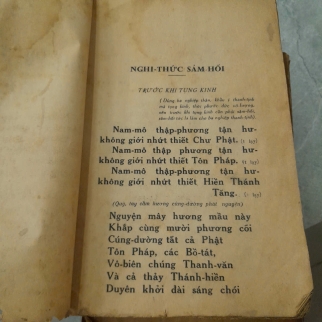 NGHI-THỨC SÁM HỐI
TRƯỚC KHI TỤNG KINH
Nam-mô thập-phương tận hư-
không giới nhứt thiết Chư Phật. (1 lạy)
Nam-mô thập-phương tận hư-
không giới nhứt thiết Tôn Pháp. (1 lạy)
Nam-mô thập-phương tận hư-
không giới nhứt thiết Hiền Thánh
Tăng. (1 lạy)
(Quỳ, tay cầm hương cúng-dường phát nguyện)
Nguyện mây hương mầu này
Khắp cùng mười phương cõi
Cúng-dường tất cả Phật
Tôn Pháp, các Bồ-tát,
Vô-biên chúng Thanh-văn
Và cả thảy Thánh-hiền
Duyên khởi đài sáng chói